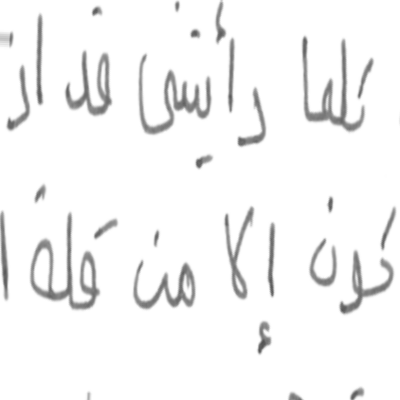 كلما رأيتني قد ار
كون إلا من قلة ا